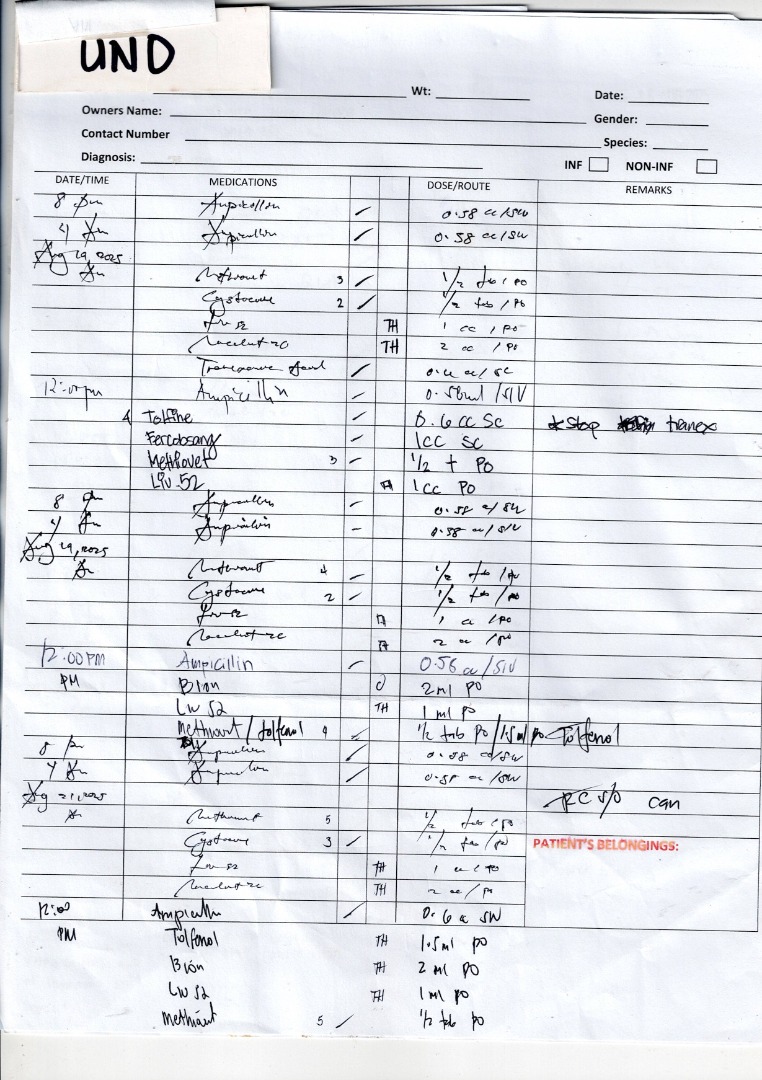 UND
Wt:
Date:
Owners Name:
Gender:
Contact Number
Species:
Diagnosis:
INF NON-INF
DATE/TIME MEDICATIONS DOSE/ROUTE REMARKS
8 pm Ampicillin 0.58 cc/SIV
4 Am Ampicillin 0.58 cc/SIV
Aug 19, 2025
Am Methiovet 3 1/2 tab / PO
Cystocure 2 1/2 tab / PO
Liv 52 TH 1 cc / PO
TH 2 cc / PO
12:00pm Ampicillin 0.58ml /SIV
Tolfine 0.6 cc SC * stop tranex
Fercobsang 1cc SC
Methiovet 3 1/2 t PO
Liv.52 1cc PO
8 pm Ampicillin 0.58 cc/SIV
4 Am Ampicillin 0.58 cc/SIV
Am 4 1/2 tab / PO
Cystocure 2 1/2 tab / PO
Liv 52 1 cc / PO
2 cc / PO
12:00 PM Ampicillin 0.58 cc/SIV
PM Bion 2 ml PO
Liv 52 TH 1 ml PO
Methiovet / Tolfenol 4 1/2 tab PO / 1.5 ml PO Tolfenol
8 pm Ampicillin 0.58 cc/SIV
4 Am Ampicillin 0.58 cc/SIV
Aug 21, 2025
can
Am Methiovet 5 1/2 tab / PO
Cystocure 3 1/2 tab / PO
PATIENT'S BELONGINGS:
Liv 52 TH 1 cc / PO
TH 2 cc / PO
12:00 Ampicillin 0.6 cc SIV
PM Tolfenol TH 1.5 ml PO
Bion TH 2 ml PO
Liv 52 TH 1 ml PO
Methiovet 5 1/2 tab PO